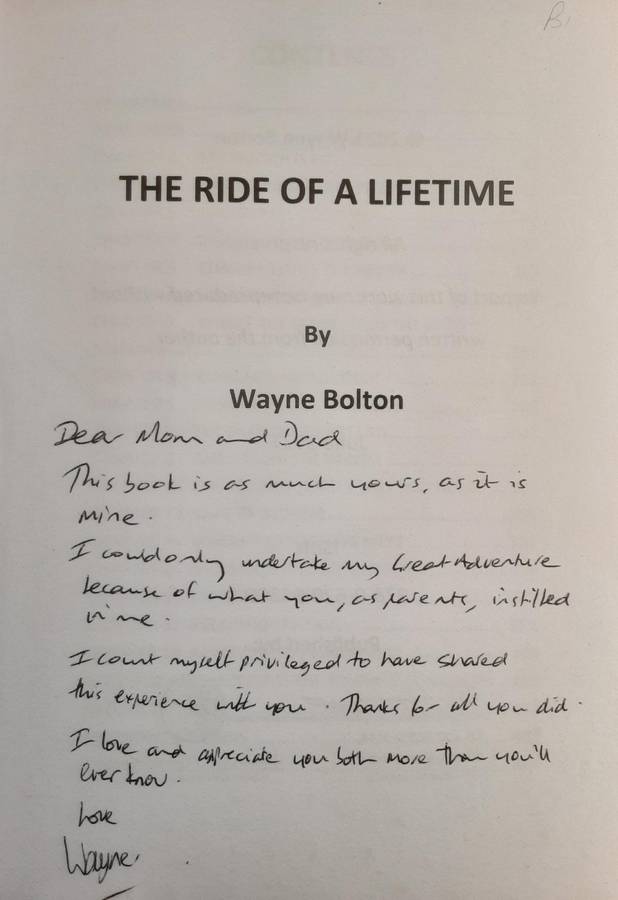 THE RIDE OF A LIFETIME
By
Wayne Bolton
Dear Mom and Dad
This book is as much yours, as it is
mine.
I could only undertake my Great Adventure
because of what you, as parents, instilled
in me.
I count myself privileged to have shared
this experience with you. Thanks for all you did.
I love and appreciate you both more than you'll
ever know.
Love
Wayne.